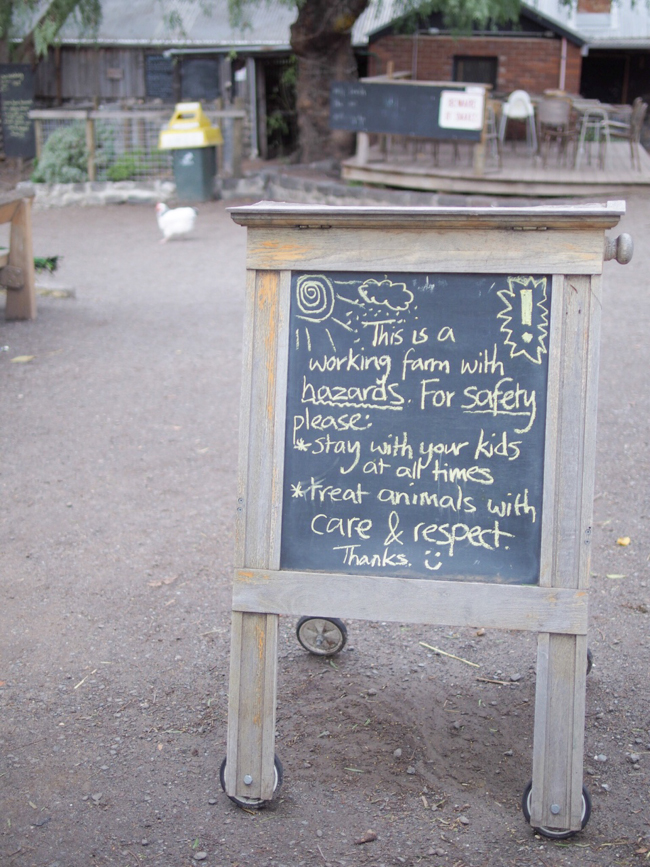 This is a
working farm with
hazards. For safety
please:
*stay with your kids
at all times
*treat animals with
care & respect.
Thanks. :)
!